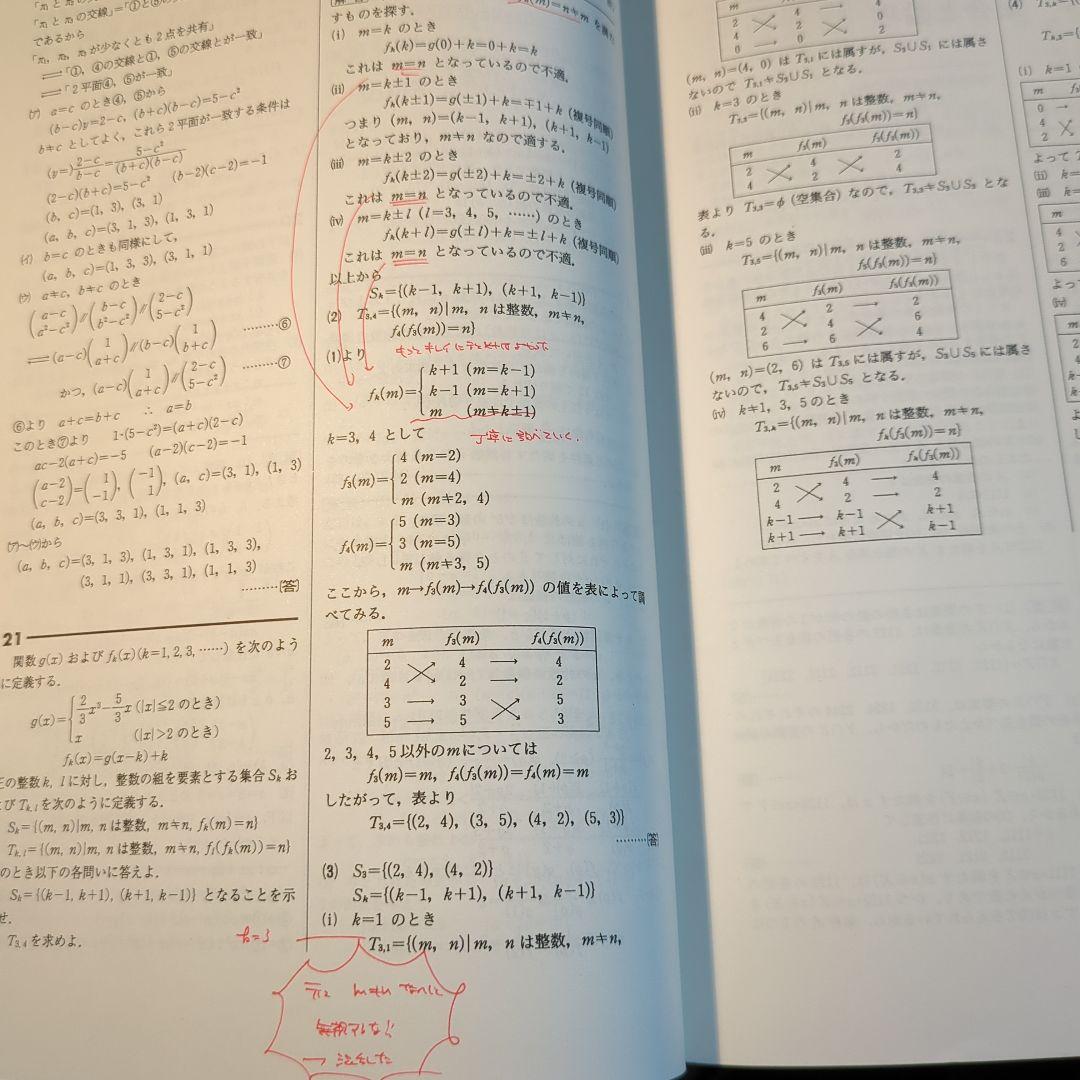 「π₁ と π₂ の交線」=「①と
であるから
「π₁, π₂ が少なくとも2点を共有」
⟺「①, ④の交線と①, ⑤の交線とが一致」
⟺「2平面④, ⑤が一致」
(ア) a=c のとき④, ⑤から
(b-c)y=2-c, (b+c)(b-c)=5-c²
b≠c としてよく, これら2平面が一致する条件は
(y=)(2-c)/(b-c)=(5-c²)/((b+c)(b-c))
(2-c)(b+c)=5-c² (b-2)(c-2)=-1
(b, c)=(1, 3), (3, 1)
(a, b, c)=(3, 1, 3), (1, 3, 1)
(イ) b=c のときも同様にして,
(a, b, c)=(1, 3, 3), (3, 1, 1)
(ウ) a≠c, b≠c のとき
(a-c, a²-c²)∥(b-c, b²-c²)∥(2-c, 5-c²)
⟺(a-c)(1, a+c)∥(b-c)(1, b+c) ………⑥
かつ, (a-c)(1, a+c)∥(2-c, 5-c²) ………⑦
⑥より a+c=b+c ∴ a=b
このとき⑦より 1・(5-c²)=(a+c)(2-c)
ac-2(a+c)=-5 (a-2)(c-2)=-1
(a-2, c-2)=(1, -1), (-1, 1), (a, c)=(3, 1), (1, 3)
(a, b, c)=(3, 3, 1), (1, 1, 3)
(ア)〜(ウ)から
(a, b, c)=(3, 1, 3), (1, 3, 1), (1, 3, 3),
(3, 1, 1), (3, 3, 1), (1, 1, 3)
………[答]
21
関数 g(x) および fₖ(x)(k=1, 2, 3, ……) を次のよう
に定義する.
g(x)={2/3x³-5/3x (|x|≦2 のとき)
x (|x|>2 のとき)
fₖ(x)=g(x-k)+k
の整数 k, l に対し, 整数の組を要素とする集合 Sₖ お
び Tₖ,ₗ を次のように定義する.
Sₖ={(m, n)|m, n は整数, m≠n, fₖ(m)=n}
Tₖ,ₗ={(m, n)|m, n は整数, m≠n, fₗ(fₖ(m))=n}
のとき以下の各問いに答えよ.
Sₖ={(k-1, k+1), (k+1, k-1)} となることを示
せ.
T₃,₄ を求めよ.
fₖ(m)=n≠m を
すものを探す.
(i) m=k のとき
fₖ(k)=g(0)+k=0+k=k
これは m=n となっているので不適.
(ii) m=k±1 のとき
fₖ(k±1)=g(±1)+k=∓1+k (複号同順)
つまり (m, n)=(k-1, k+1), (k+1, k-1)
となっており, m≠n なので適する.
(iii) m=k±2 のとき
fₖ(k±2)=g(±2)+k=±2+k (複号同順)
これは m=n となっているので不適.
(iv) m=k±l (l=3, 4, 5, ……) のとき
fₖ(k+l)=g(±l)+k=±l+k (複号同順)
これは m=n となっているので不適.
以上から
Sₖ={(k-1, k+1), (k+1, k-1)}
(2) T₃,₄={(m, n)|m, n は整数, m≠n,
f₄(f₃(m))=n}
(1)より
fₖ(m)={k+1 (m=k-1)
k-1 (m=k+1)
m (m≠k±1)
k=3, 4 として
f₃(m)={4 (m=2)
2 (m=4)
m (m≠2, 4)
f₄(m)={5 (m=3)
3 (m=5)
m (m≠3, 5)
ここから, m→f₃(m)→f₄(f₃(m)) の値を表によって調
べてみる.
m f₃(m) f₄(f₃(m))
2 4 → 4
4 2 → 2
3 → 3 5
5 → 5 3
2, 3, 4, 5以外のmについては
f₃(m)=m, f₄(f₃(m))=f₄(m)=m
したがって, 表より
T₃,₄={(2, 4), (3, 5), (4, 2), (5, 3)}
………[答]
(3) S₃={(2, 4), (4, 2)}
Sₖ={(k-1, k+1), (k+1, k-1)}
(i) k=1 のとき
k=3
T₃,₁={(m, n)|m, n は整数, m≠n,
2 4
4 2 0
0 → 0 2
(m, n)=(4, 0) は T₃,₁ には属すが, S₃∪S₁ には属さ
ないので T₃,₁≠S₃∪S₁ となる.
(ii) k=3 のとき
T₃,₃={(m, n)|m, n は整数, m≠n,
f₃(f₃(m))=n}
m f₃(m) f₃(f₃(m))
2 4 2
4 2 4
表より T₃,₃=φ (空集合) なので, T₃,₃≠S₃∪S₃ とな
る.
(iii) k=5 のとき
T₃,₅={(m, n)|m, n は整数, m≠n,
f₅(f₃(m))=n}
m f₃(m) f₅(f₃(m))
4 2 → 2
2 4 6
6 → 6 4
(m, n)=(2, 6) は T₃,₅ には属すが, S₃∪S₅ には属さ
ないので, T₃,₅≠S₃∪S₅ となる.
(iv) k≠1, 3, 5 のとき
T₃,ₖ={(m, n)|m, n は整数, m≠n,
fₖ(f₃(m))=n}
m f₃(m) fₖ(f₃(m))
2 4 → 4
4 2 → 2
k-1 → k-1 k+1
k+1 → k+1 k-1
(4)
(i) k=1
m
0 →
4
2
よって
(ii) k=
(iii) k=
m
2
4
6
よっ
(iv)